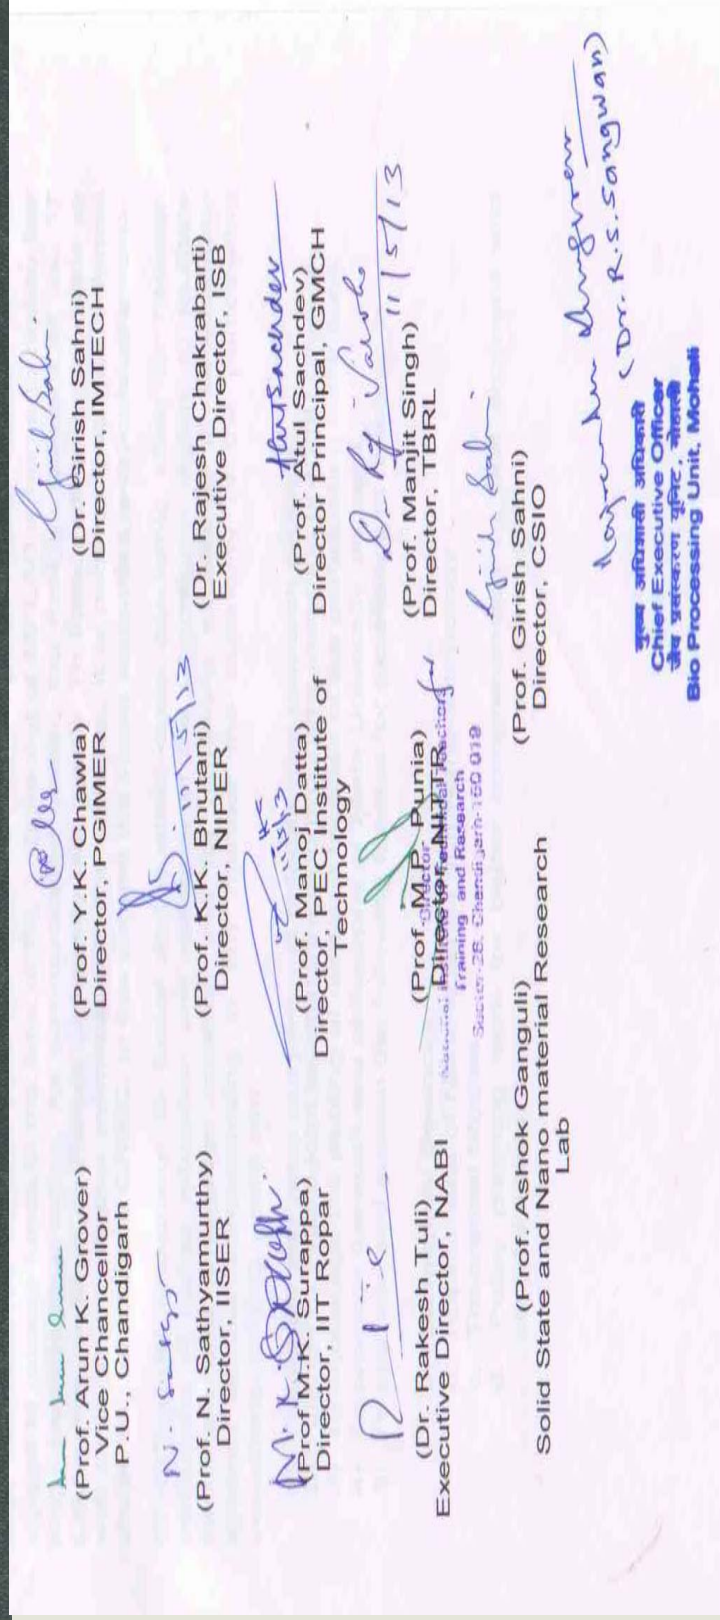 (Prof. Arun K. Grover)
Vice Chancellor
P.U., Chandigarh
(Prof. Y.K. Chawla)
Director, PGIMER
Girish Sahni
(Dr. Girish Sahni)
Director, IMTECH
N. Sathya
(Prof. N. Sathyamurthy)
Director, IISER
11/5/13
(Prof. K.K. Bhutani)
Director, NIPER
(Dr. Rajesh Chakrabarti)
Executive Director, ISB
M.K.
(Prof M.K. Surappa)
Director, IIT Ropar
11/5/13
(Prof. Manoj Datta)
Director, PEC Institute of
Technology
Atul Sachdev
(Prof. Atul Sachdev)
Director Principal, GMCH
(Dr. Rakesh Tuli)
Executive Director, NABI
(Prof. M.P. Punia)
Director, NITTR
Director
National Institute of Technical Teachers
Training and Research
Sector-26, Chandigarh-160 019
for Dr. 11/5/13
(Prof. Manjit Singh)
Director, TBRL
(Prof. Ashok Ganguli)
Solid State and Nano material Research
Lab
Girish Sahni
(Prof. Girish Sahni)
Director, CSIO
Rajender Sangwan
(Dr. R.S. Sangwan)
मुख्य अधिशासी अधिकारी
Chief Executive Officer
जैव प्रसंस्करण यूनिट, मोहाली
Bio Processing Unit, Mohali